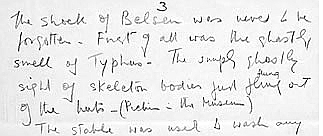 3
The shock of Belsen was never to be
forgotten - First of all was the ghastly
smell of Typhus - The simply ghastly
sight of skeleton bodies just flung out
of the huts - (Picture in the Museum)
The stable was used to wash any